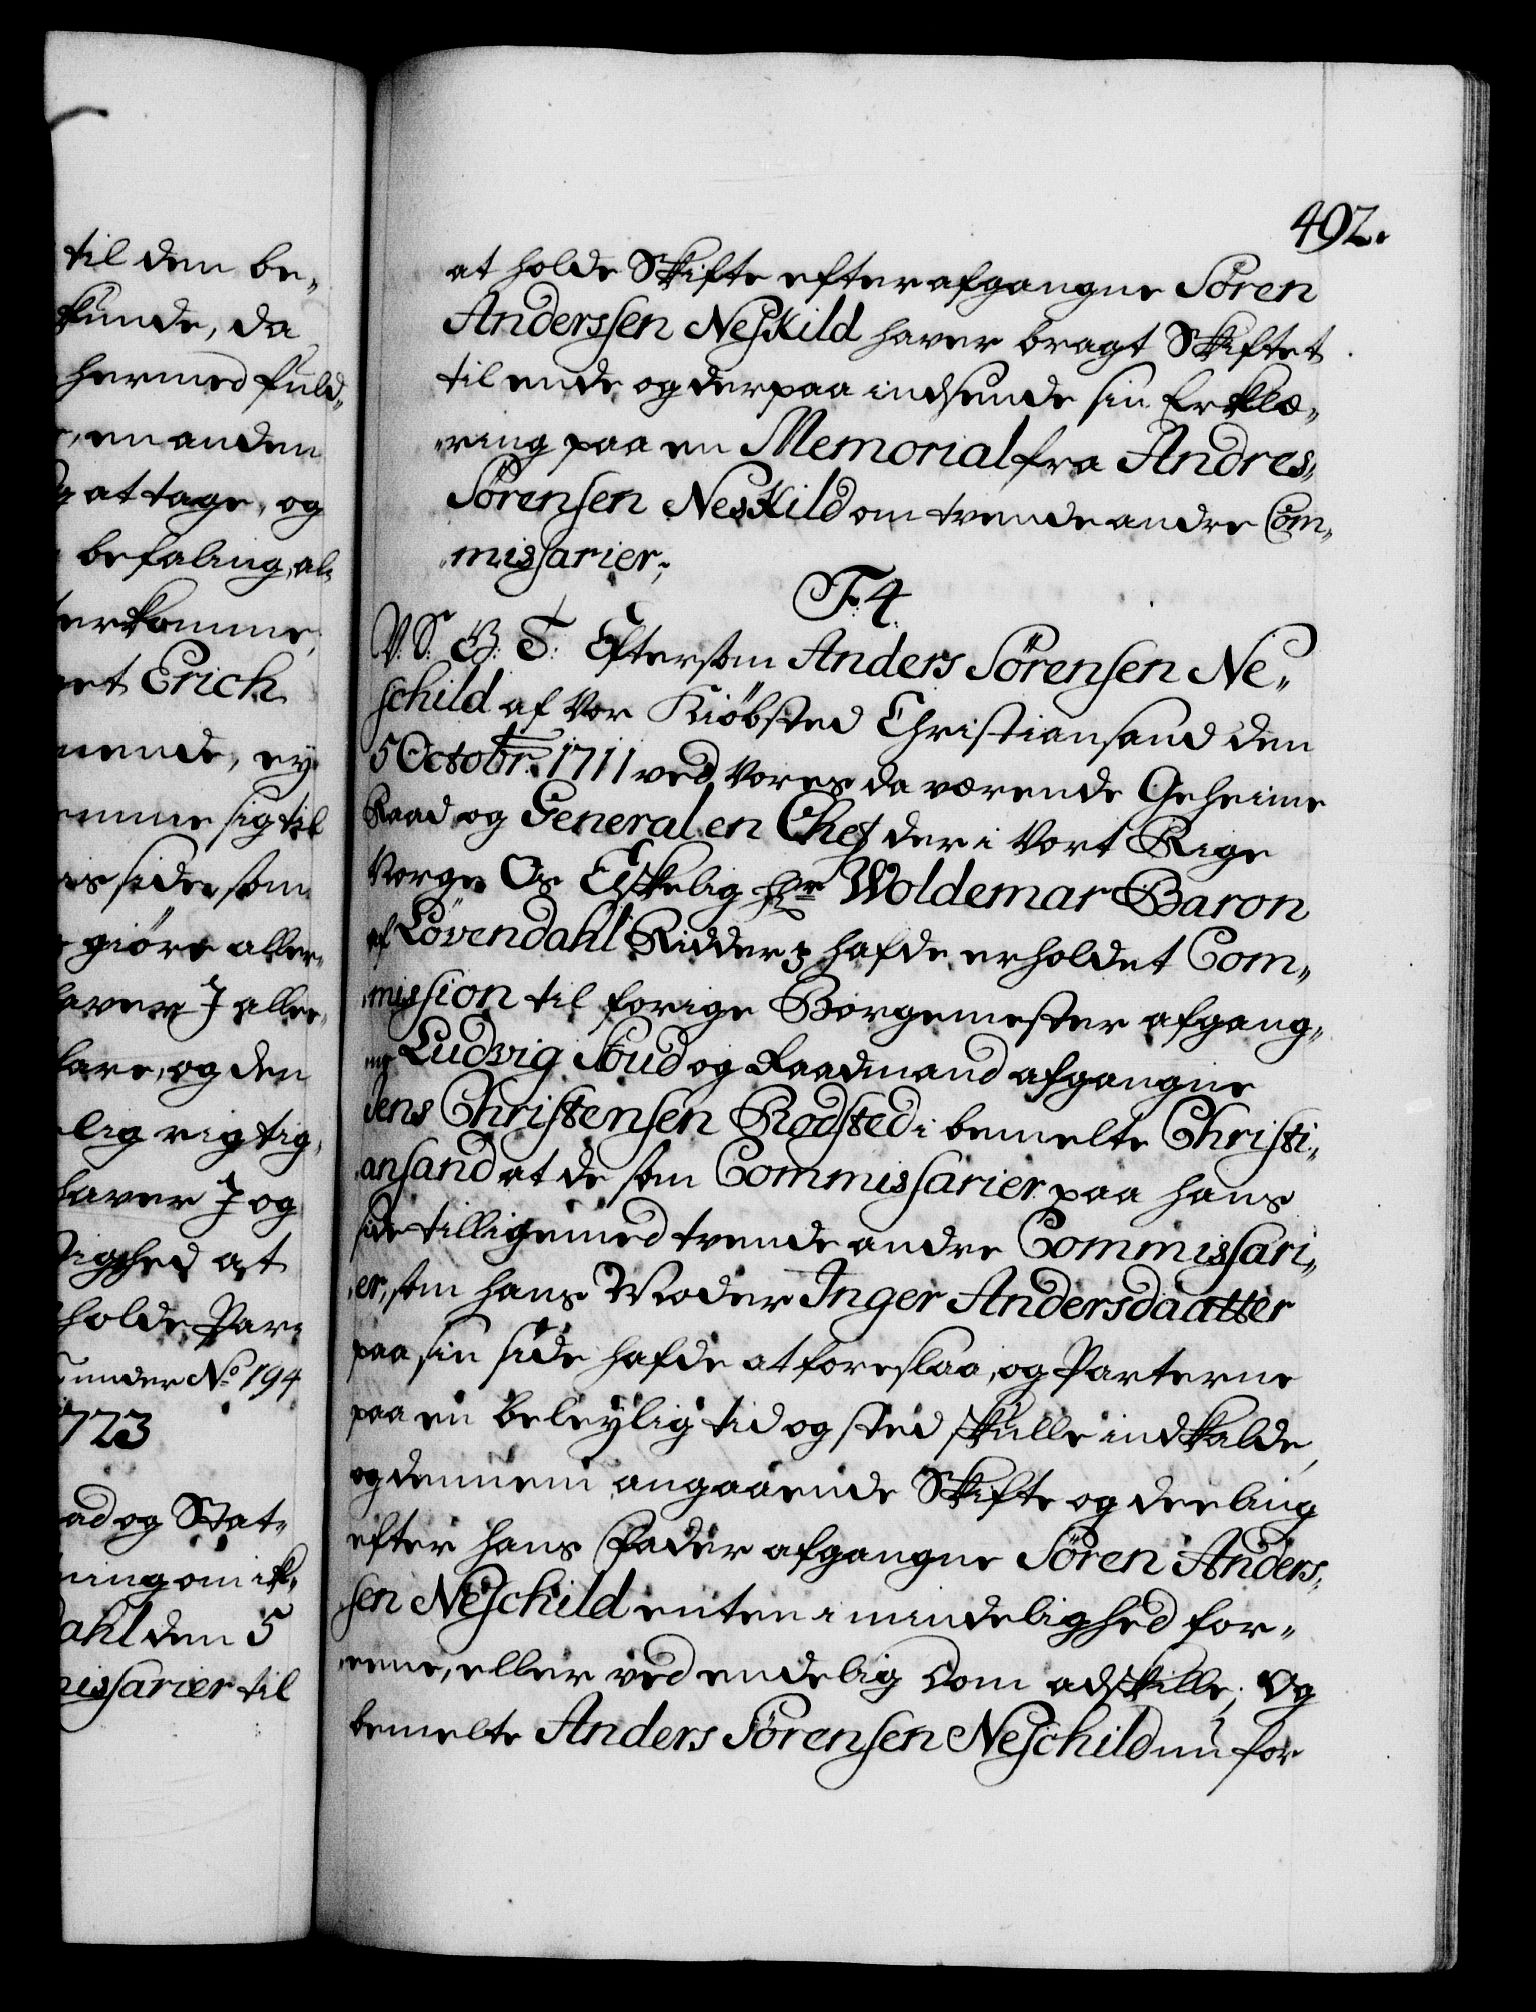 til den be„
kunde, da
hermed fuld„
, en anden
at tage, og
befaling, al„
terkomme,
et Erich
nende, ey
emme sig til
is side som
giöre aller„
aver I aller„
lare, og den
lig rigtig„
haver I og
tighed at
holde Par„
under No 194
1723
ad og Stat„
ning om ik„
dahl den 5
missarier til
492.
at holde Skifte efter afgangne Sören
Anderssen Neskild haver bragt Skiftet
til ende og derpaa indsende sin Erklæ„
„ring paa en Memorial fra Andres„
Sörensen Neskild om tvende andre Com„
„missarier;
F. 4.
V. S. G. T. Eftersom Anders Sörensen Ne„
schild af Vor Kiöbsted Christiansand den
5 Octobr. 1711 ved Vores da værende Geheime
Raad og General en Chef der i Vort Rige
Norge Os Elskelig Hr Woldemar Baron
af Lövendahl Ridder ꝛc hafde erholdet Com„
„mission til forige Borgemester afgang„
ne Ludvig Stud og Raadmand afgangne
Jens Christensen Rodsted i bemelte Christi„
„ansand at de som Commissarier paa hans
side tilligemed tvende andre Commissari„
„er, som hans Moder Inger Andersdaatter
paa sin side hafde at foreslaa, og Parterne
paa en beleylig tid og sted skulle indkalde,
og dennem angaaende Skifte og deeling
efter hans Fader afgangne Sören Anders„
sen Neschild enten i mindelighed for„
„eene, eller ved endelig Dom adskille; Og
bemelte Anders Sörensen Neschild nu for